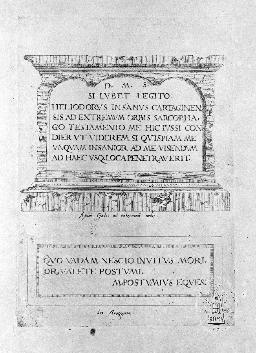 D. M. S.
SI LVBET LEGITO.
HELIODORVS INSANVS CARTAGINEN
SIS AD EXTREMVM ORBIS SARCOPHA
GO TESTAMENTO ME HIC IVSSI CON
DIER VT VIDEREM SI QVISPIAM ME
VNQVAM INSANIOR AD ME VISENDVM
AD HAEC VSQ. LOCA PENETRAVERIT.
QVO VADAM NESCIO INVITVS MORI
OR, VALETE POSTVMI.
M. POSTVMIVS EQVES.